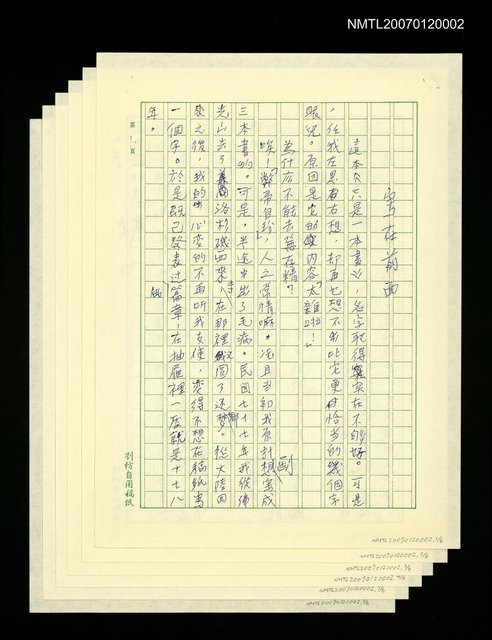 NMTL20070120002
寫在前面
這本《只是一本書》，名字取得實在不夠好。可是
，任我左思右想，却再也想不出比它更恰當的幾個字
眼兒。原因是它的內容太雜啦！
為什麼不能去蕪存精？
唉！敝帚自珍，人之常情嘛。況且當初我原計劃想寫成
三本書的。可是，半途中出了毛病。民國七十七年我從佛
光山去了洛杉磯西來寺，在那裡圓了還鄉夢。從大陸回
來之後，我的心變的不再听我支使，變得不想在稿紙上寫
一個字。於是既已發表过篇章，在抽屜裡一放就是十七八
年。
第1頁
劉枋自用稿紙
NMTL20070120002, 1/6
NMTL20070120002, 2/6
NMTL20070120002, 3/6
NMTL20070120002, 4/6
NMTL20070120002, 5/6
NMTL20070120002, 6/6